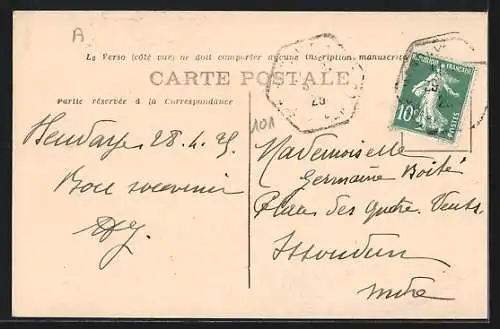 A
Le Verso (côté vue) ne doit comporter aucune inscription manuscrite
CARTE POSTALE
Partie réservée à la Correspondance
101
Hendaye 28.4.25
Bon souvenir
Mademoiselle
Germaine Boité
Place des Quatre Vents
Issoudun
Indre
REPUBLIQUE FRANÇAISE
10c
POSTES